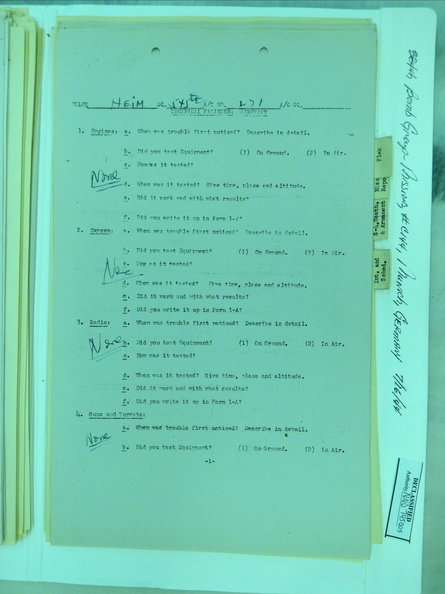 PILOT HEIM SQ. 545th A/C NO. 271 A/C SQ.
1. Engines: a. When was trouble first noticed? Describe in detail.
b. Did you test Equipment? (1) On Ground. (2) In Air.
c. How was it tested?
None
d. When was it tested? Give time, place and altitude.
e. Did it work and with what results?
f. Did you write it up in Form 1-A?
2. Oxygen: a. When was trouble first noticed? Describe in detail.
b. Did you test Equipment? (1) On Ground. (2) In Air.
c. How was it tested?
None
d. When was it tested? Give time, place and altitude.
e. Did it work and with what results?
f. Did you write it up in Form 1-A?
3. Radio: a. When was trouble first noticed? Describe in detail.
None
b. Did you test Equipment? (1) On Ground. (2) In Air.
c. How was it tested?
d. When was it tested? Give time, place and altitude.
e. Did it work and with what results?
f. Did you write it up in Form 1-A?
4. Guns and Turrets:
a. When was trouble first noticed? Describe in detail.
None
b. Did you test Equipment? (1) On Ground. (2) In Air.
-1-
Flak
& Armament
Int. and
Sched.
384th Bomb Group - Missions # 144, Munich, GERMANY
DECLASSIFIED
Authority NND 745005